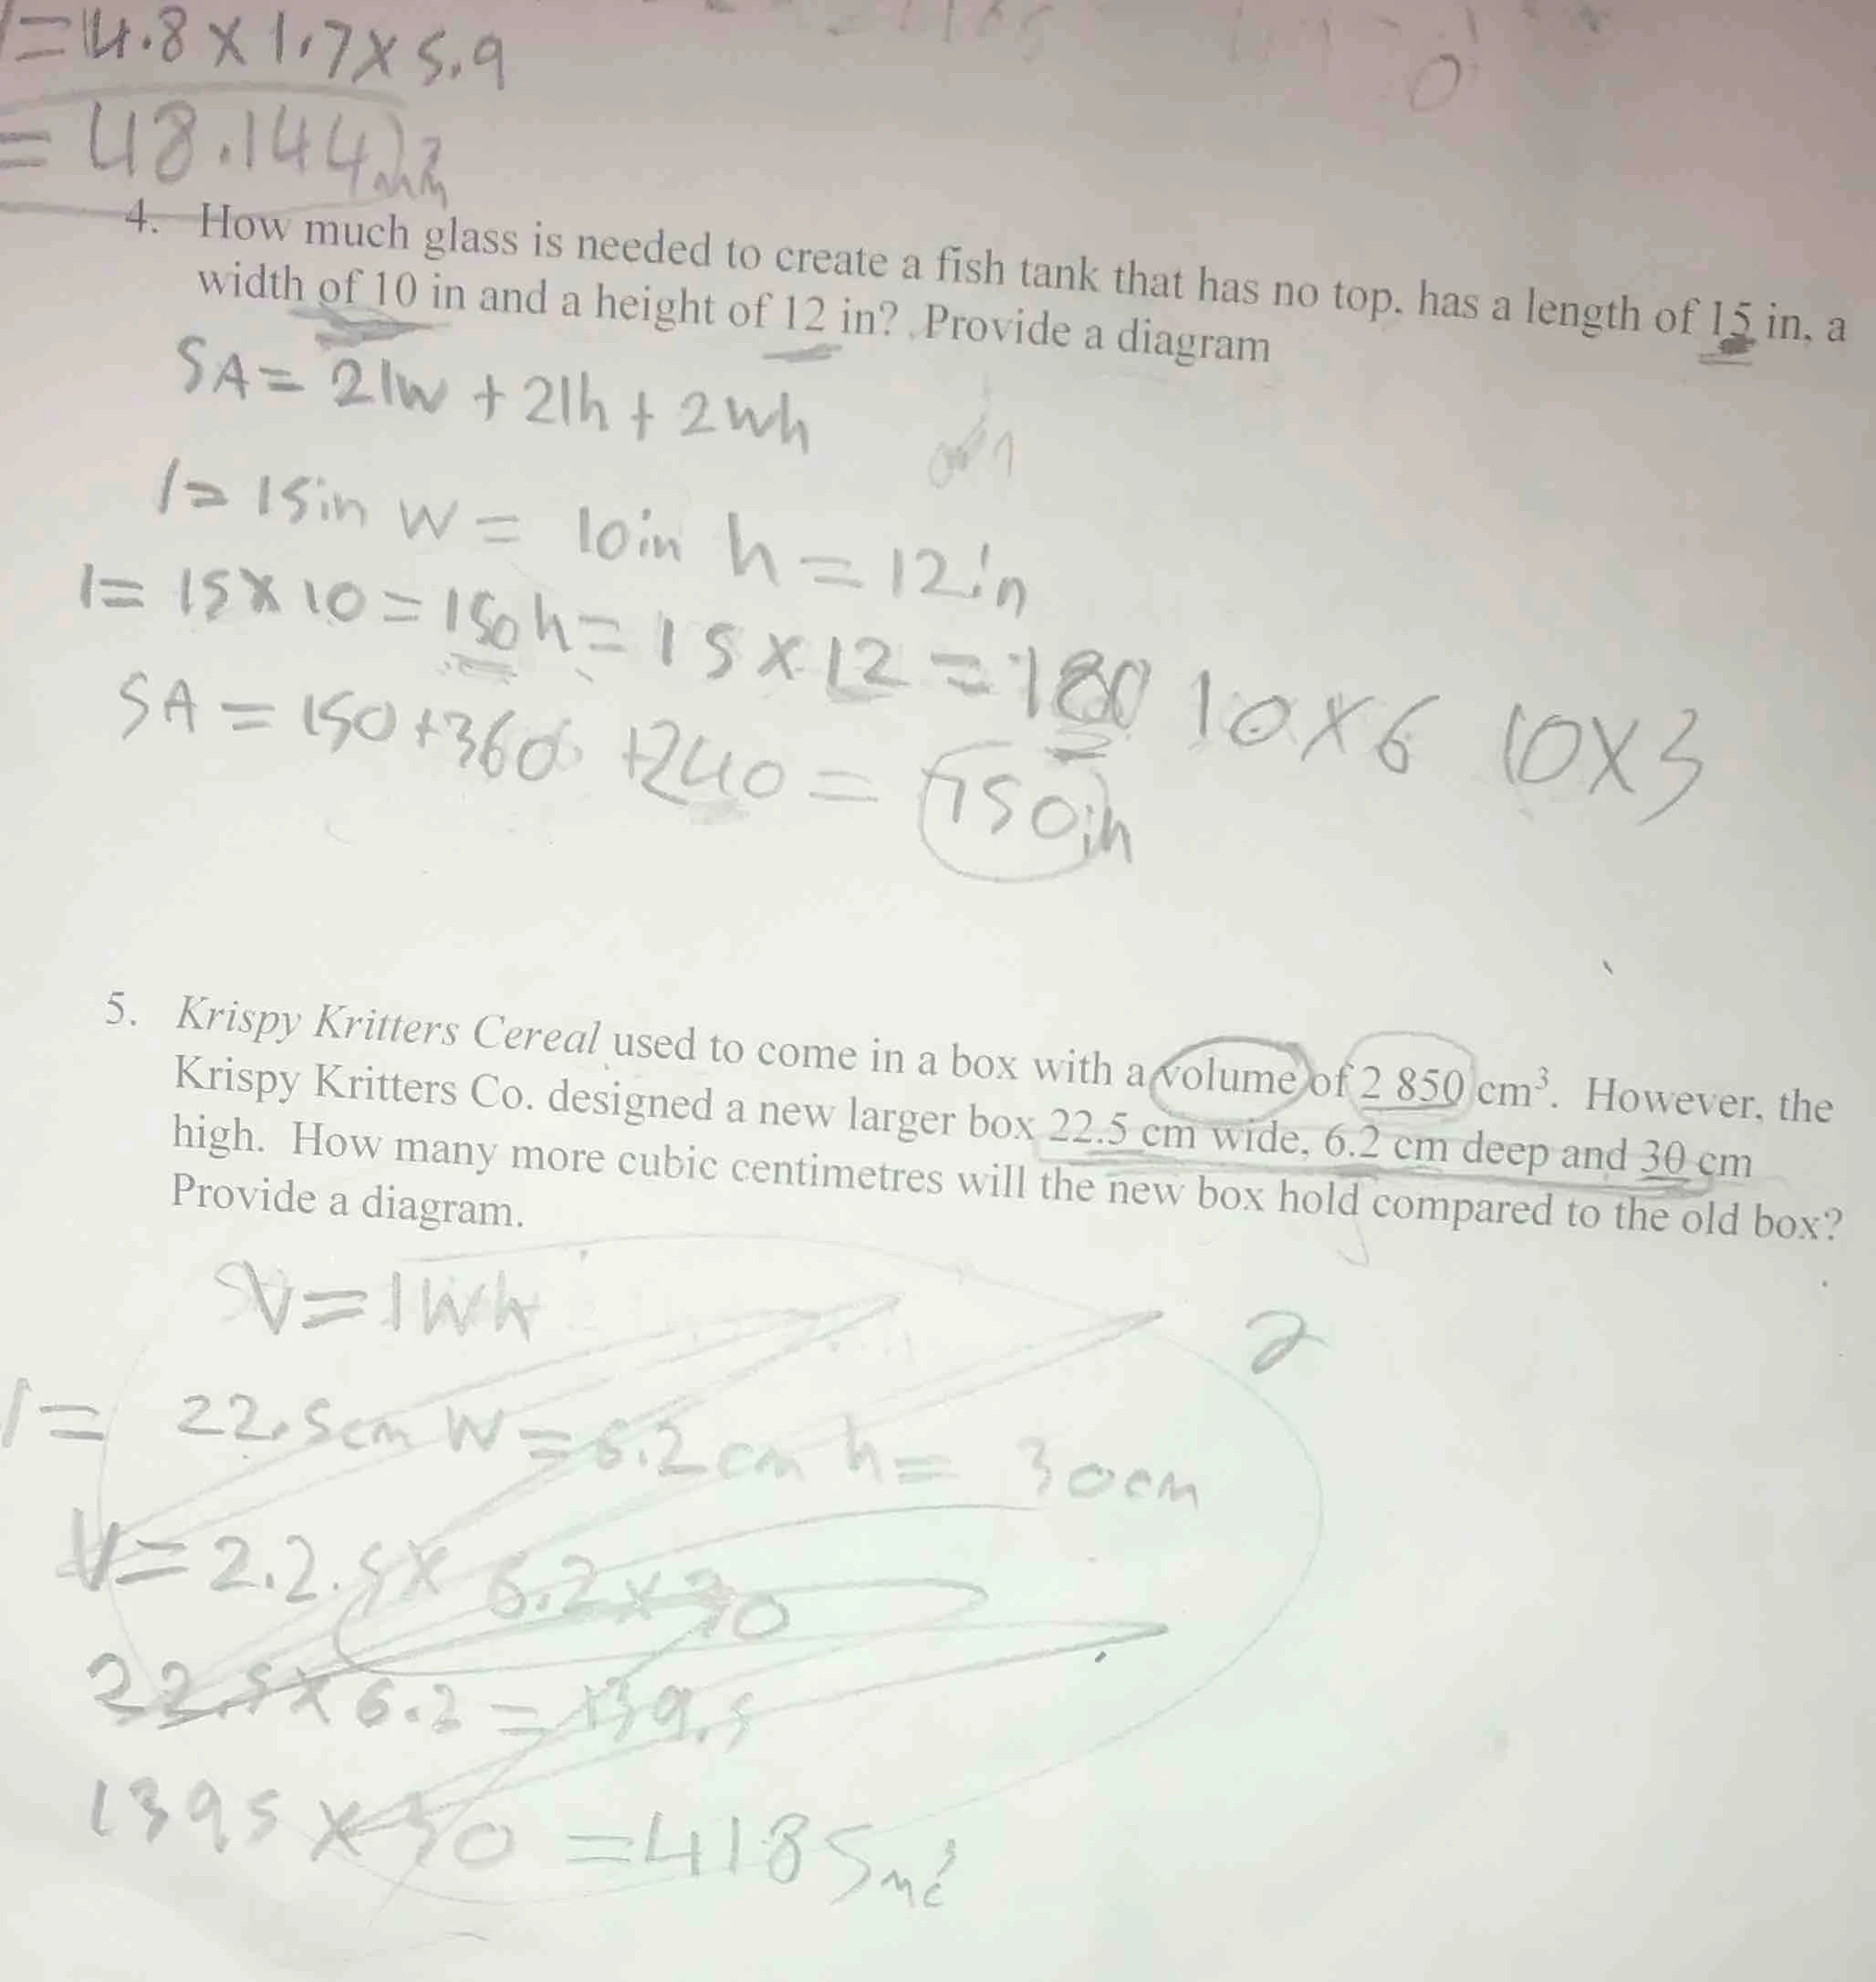 =4.8 x 1.7 x 5.9
= 48.144
4. How much glass is needed to create a fish tank that has no top, has a length of 15 in, a
width of 10 in and a height of 12 in? Provide a diagram
SA = 2lw + 2lh + 2wh
l = 15in w = 10in h = 12in
l = 15 x 10 = 150 h = 15 x 12 = 180 10 x 6 10 x 3
SA = 150 + 360 + 240 = 750in
5. Krispy Kritters Cereal used to come in a box with a volume of 2 850 cm³. However, the
Krispy Kritters Co. designed a new larger box 22.5 cm wide, 6.2 cm deep and 30 cm
high. How many more cubic centimetres will the new box hold compared to the old box?
Provide a diagram.
V = lwh
2
l = 22.5cm w = 6.2cm h = 30cm
V = 2.2.5 x 6.2 x 30
22.5 x 6.2 = 139.5
1395 x 30 = 4185